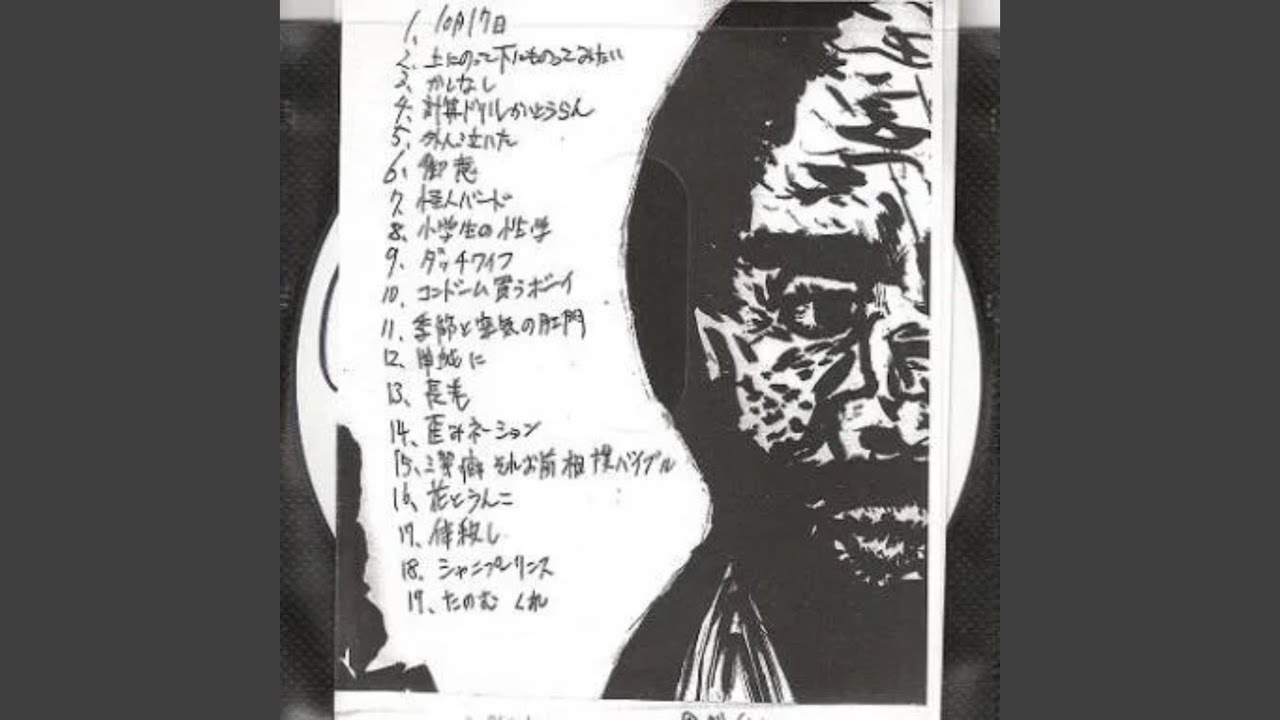 1、10月17日
2、上にのって下にものってみたい
3、かしなし
4、計算ドリルかいとうらん
5、外人泣いた
6、御恵
7、怪人バード
8、小学生の性学
9、ダッチワイフ
10、コンドーム買うボーイ
11、季節と空気の肛門
12、単純に
13、長毛
14、歪みネーション
15、それお前相撲バイブル
16、花とうんこ
17、体殺し
18、シャンプーリンス
19、たのむ くれ